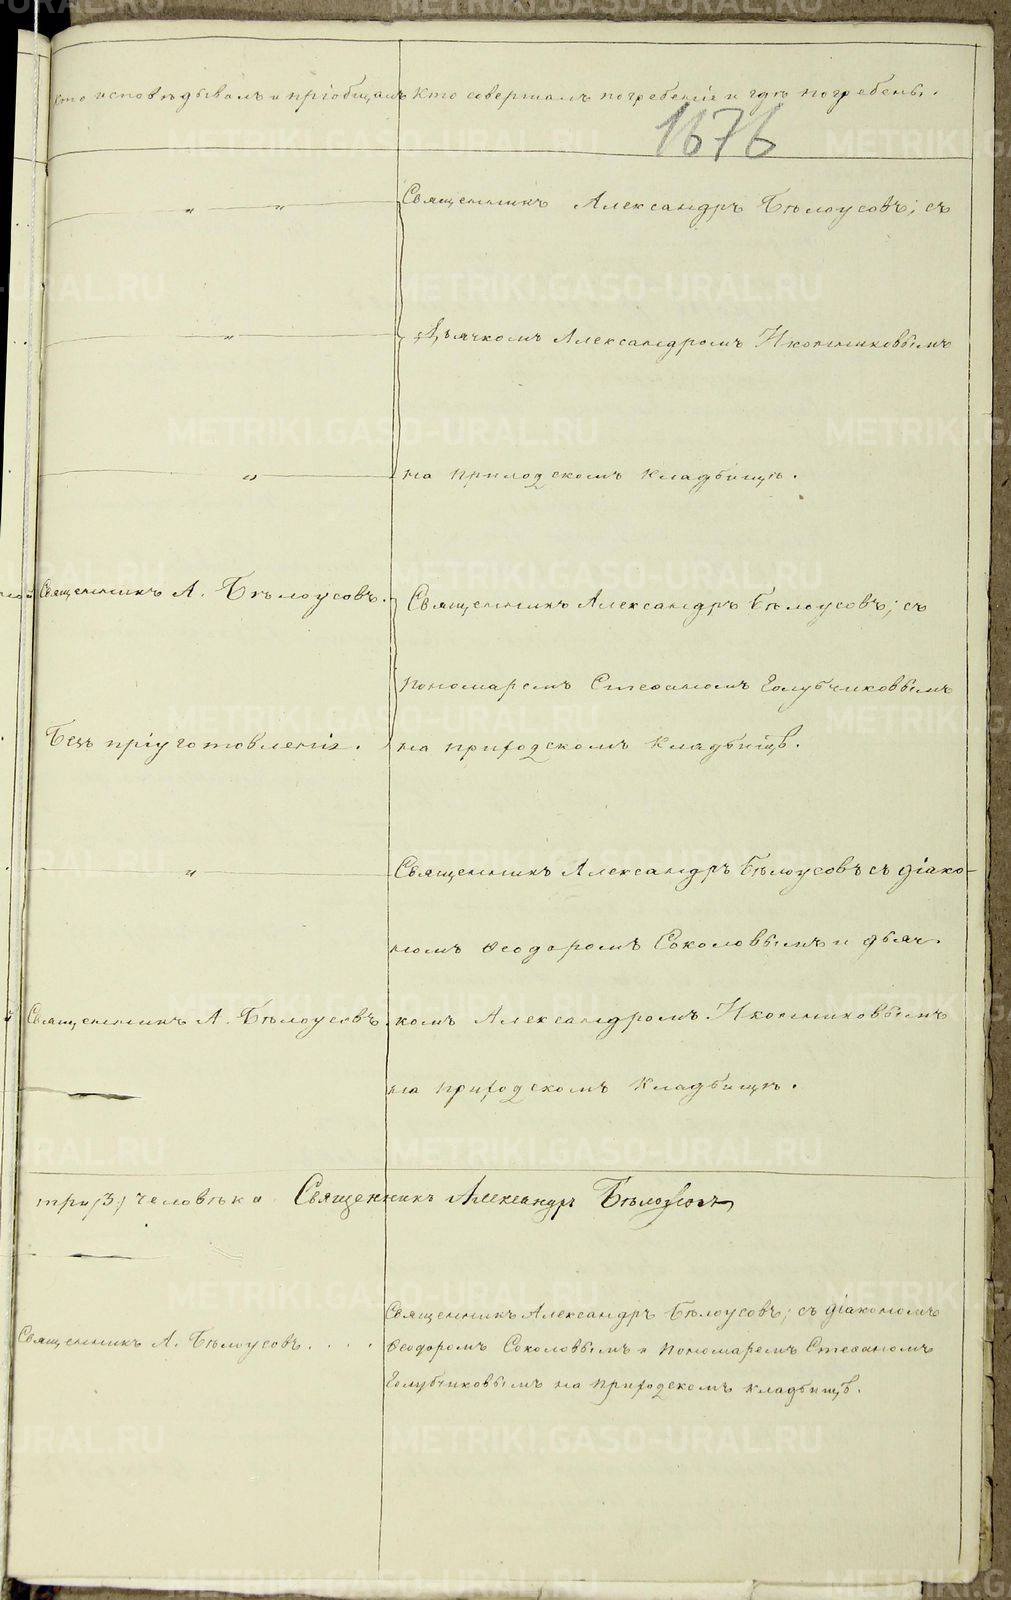 Кто исповѣдывалъ и пріобщалъ Кто совершалъ погребеніе и гдѣ погребены.
1676
„ „ Священникъ Александръ Бѣлоусовъ; съ
„ Дьячкомъ Александромъ Иконниковымъ
„ на приходскомъ кладбищѣ.
Священникъ А. Бѣлоусовъ. Священникъ Александръ Бѣлоусовъ; съ
пономаремъ Стефаномъ Голубчиковымъ
Безъ пріуготовленія. на приходскомъ кладбищѣ.
„ Священникъ Александръ Бѣлоусовъ съ діако-
номъ Ѳеодоромъ Соколовымъ и дьяч-
Священникъ А. Бѣлоусовъ. комъ Александромъ Иконниковымъ
на приходскомъ кладбищѣ.
три /3./ человѣка Священникъ Александръ Бѣлоусовъ
Священникъ Александръ Бѣлоусовъ; съ діакономъ
Священникъ А. Бѣлоусовъ. . . . Ѳеодоромъ Соколовымъ и пономаремъ Стефаномъ
Голубчиковымъ на приходскомъ кладбищѣ.
METRIKI.GASO-URAL.RU